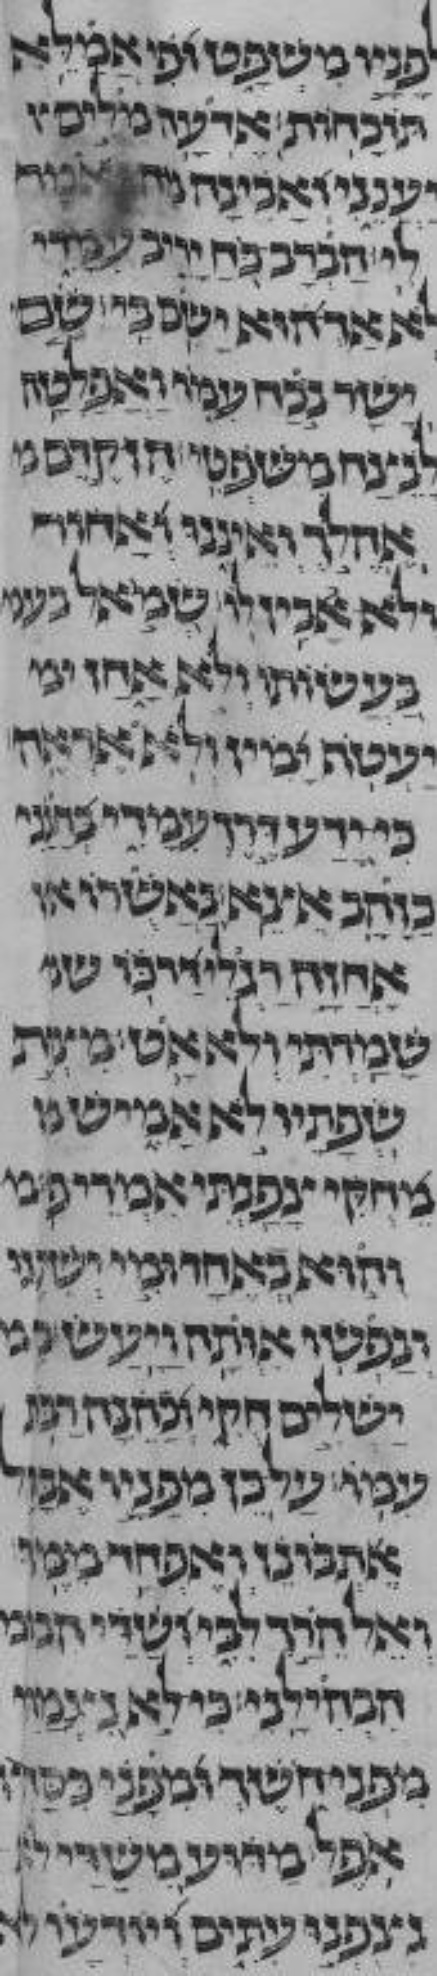 לפניו משפט ופי אמלא
תוכחות׃ אדעה מלים י
יענני ואבינה מה יאמר
לי׃ הברב כח יריב עמדי
לא אך הוא ישם בי׃ שם
ישר נכח עמו ואפלטה
לנצח משפטי׃ הן קדם מ
אהלך ואיננו ואחור
ולא אבין לו׃ שמאל בעש
בעשותו ולא אחז ימ
יעטף ימין ולא אראה׃
כי ידע דרך עמדי בחנני
כזהב אצא׃ באשרו אח
אחזה רגלי דרכו שמ
שמרתי ולא אט׃ מצות
שפתיו לא אמיש מו
מחקי צפנתי אמרי פיו׃
והוא באחד ומי ישיבנו
ונפשו אותה ויעש׃ כי
ישלים חקי וכהנה רבות
עמו׃ על כן מפניו אבהל
אתבונן ואפחד ממנו׃
ואל הרך לבי ושדי הבהי
הבהילני׃ כי לא נצמתי
מפני חשך ומפני כסה
אפל׃ מדוע משדי לא
נצפנו עתים ויודעו לא